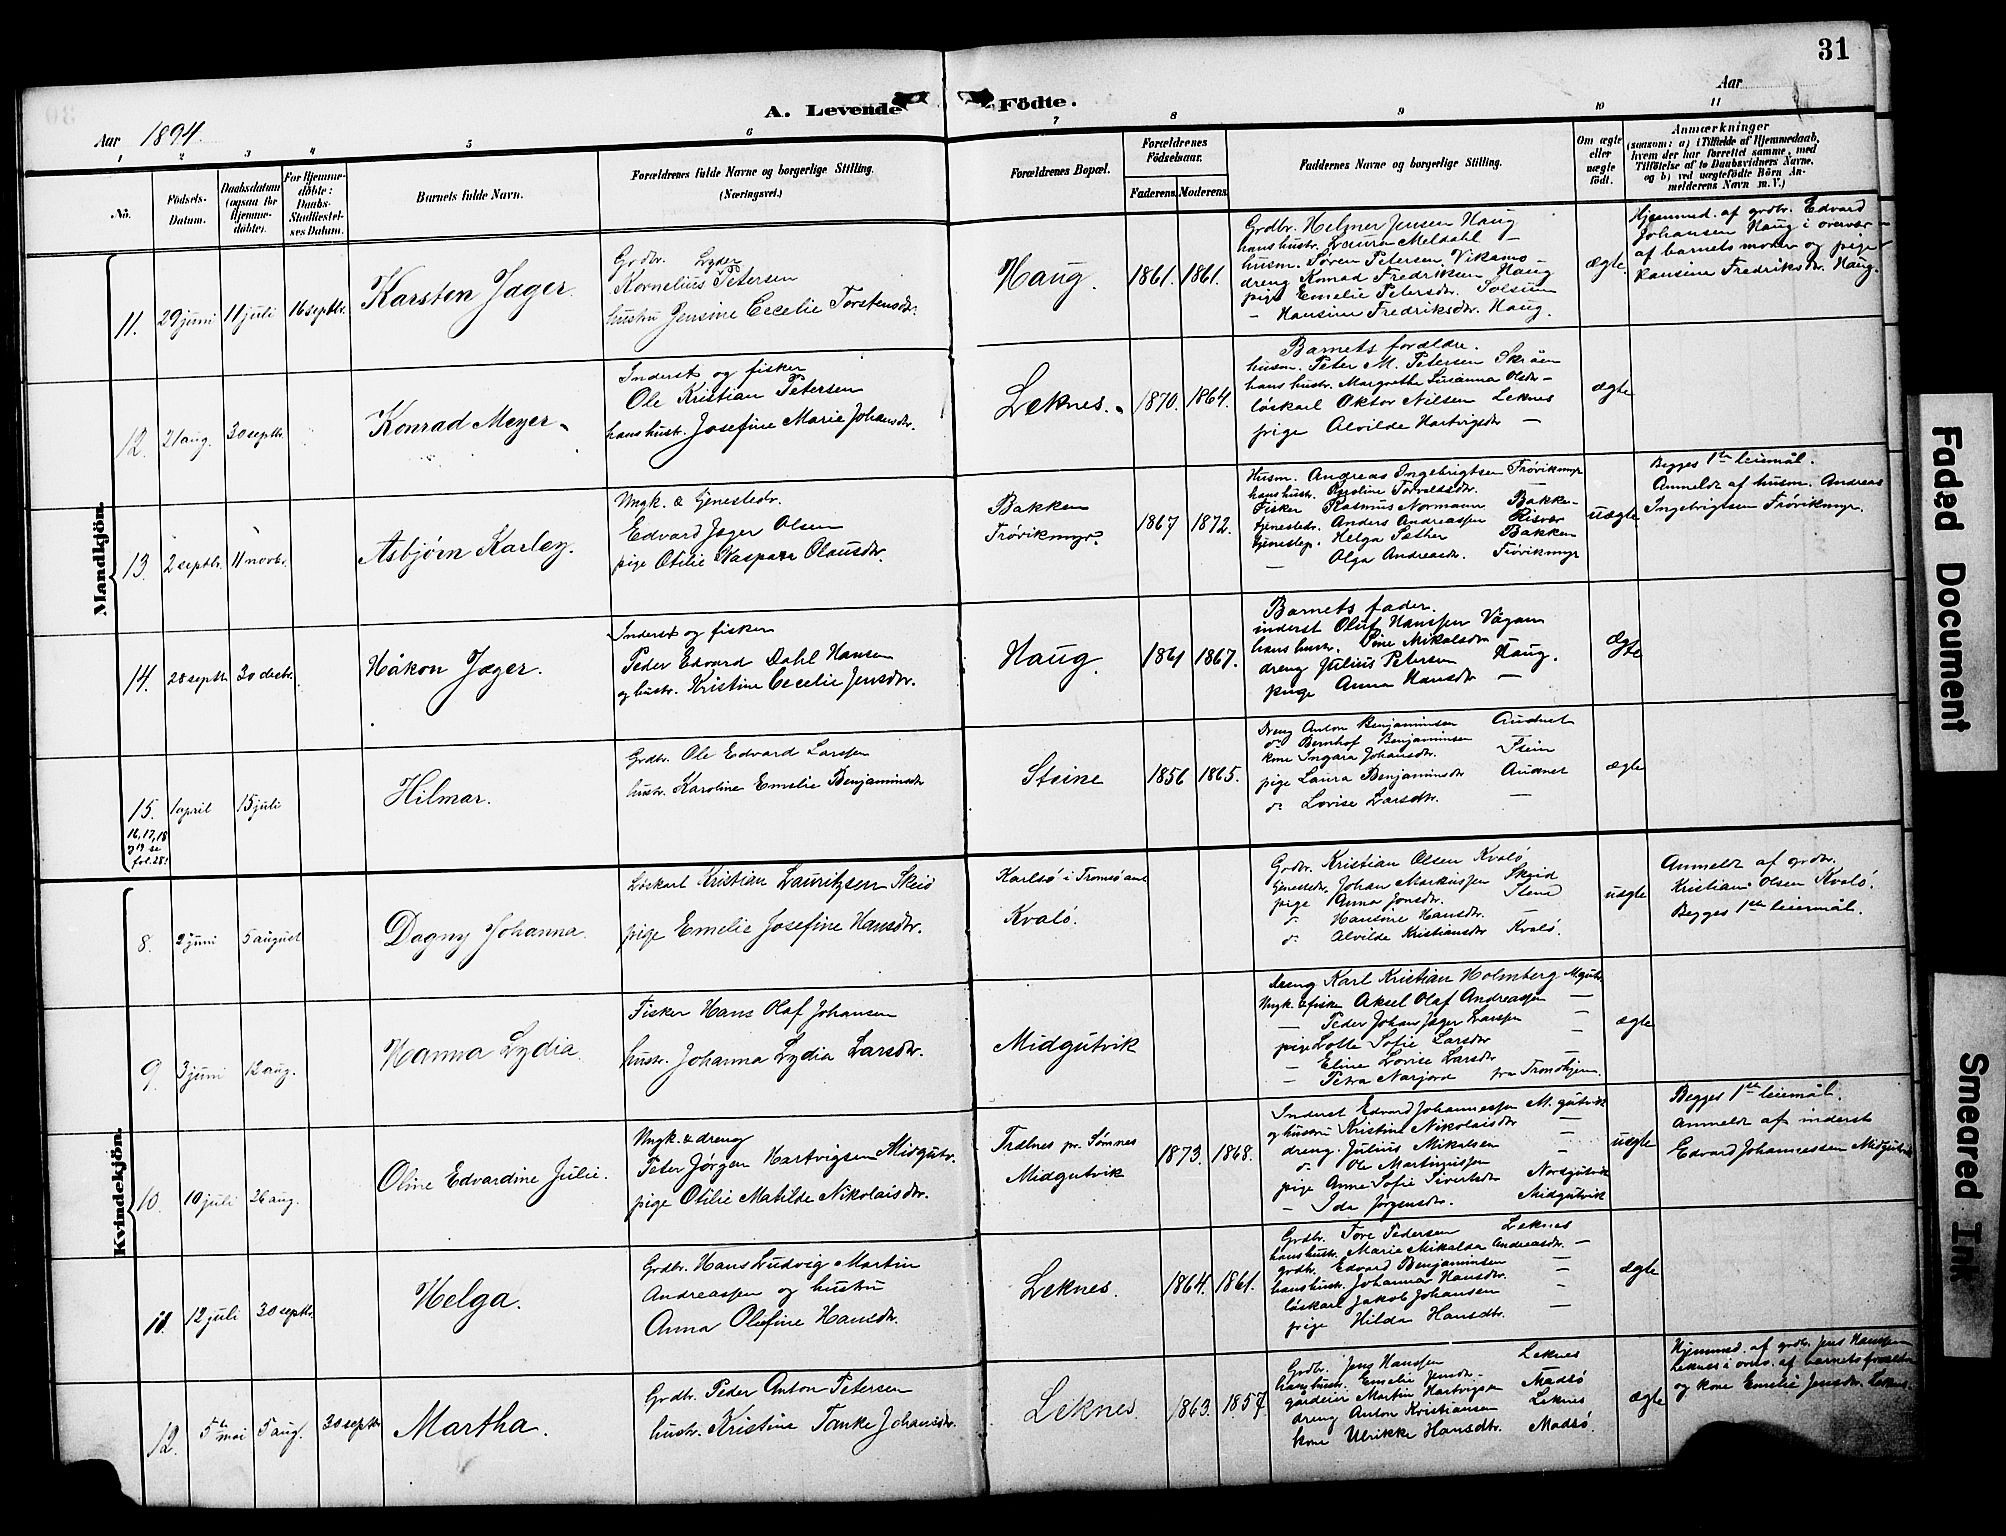 31
A. Levende Födte.
Aar 1894.
Aar
1 2 3 4 5 6 7 8 9 10 11
No.
Födsels-
Datum.
Daabsdatum
(ogsaa for
Hjemme-
döbte).
For Hjemme-
döbte:
Daabs-
Stadfæstel-
ses Datum.
Barnets fulde Navn.
Forældrenes fulde Navne og borgerlige Stilling.
(Næringsvei.)
Forældrenes Bopæl.
Forældrenes
Födselsaar.
Faderens. Moderens.
Faddernes Navne og borgerlige Stilling.
Om ægte
eller
uægte
födt.
Anmærkninger
(saasom: a) i Tilfælde af Hjemmedaab,
hvem der har forrettet samme, med
Tilföielse af to Daabsvidners Navne,
og b) ved uægtefödte Börn An-
melderens Navn m. V.)
Mandkjön.
11. 29 juni 11 juli 16 septbr. Karsten Jager.
Grdbr. Lyder
Kornelius Petersen
hustru Jensine Cecelie Torstensdtr.
Haug. 1861. 1861.
Grdbr. Helmer Jensen Haug
hans hustr. Laura Meldahl —
husm. Sören Petersen Vikamo —
dreng Konrad Fredriksen Haug
pige Emelie Petersdtr. Solsem
— Hansine Fredriksdtr. Haug.
ægte
Hjemmed. af grdbr. Edvard
Johansen Haug i overvær
af barnets moder og pige
Hansine Fredriksdtr. Haug.
12. 21 aug. 30 septbr. Konrad Meyer.
Inderst og fisker
Ole Kristian Petersen
hans hustr. Josefine Marie Johansdtr.
Leknes. 1870. 1864.
Barnets forældre.
husm. Peter M. Petersen Skråen
hans hustr. Margrethe Susanna Olsdtr —
löskarl Oktor Nilsen Leknes
pige Alvilde Hartvigsdtr —
ægte
13. 2 septbr. 11 novbr. Asbjørn Karley.
Ungk. & tjenestedr.
Edvard Jager Olsen
pige Otilie Kaspara Olausdtr.
Bakken
Trövikmyr. 1867 1872.
Husm. Andreas Ingebrigtsen Trövikmyr
hans hustr. Karoline Torvaldsdtr. —
Fisker Rasmus Normann Bakken
tjenestedr. Anders Andreassen Risvær
tjenestep. Helga Sæther Bakken
— Olga Andreasdtr. Trövikmyr
uægte
Begges 1ste leiemål.
Anmeldt af husm. Andreas
Ingebrigtsen Trövikmyr.
14. 28 septbr 30 decbr. Håkon Jæger.
Inderst og fisker
Peder Edvard Dahl Hansen
og hustr. Kristine Cecelie Jensdtr.
Haug. 1861 1867.
Barnets fader.
inderst Oluf Hanssen Vågan
hans hustr. Sine Mikalsdtr
dreng Julius Petersen Haug.
pige Anna Hansdtr —
Ægte
15. 1 april 15 juli Hilmar.
Grdbr. Ole Edvard Larssen
hustr. Karoline Emelie Benjaminsdtr
Steine 1856 1865.
Dreng Anton Benjaminsen
do Bernhof Benjaminsen
kone Ingara Johansdtr. Stein
pige Laura Benjaminsdtr
do Lovise Larsdtr. —
ægte
16, 17, 18
og 19 se
fol. 28!
Kvindekjön.
8. 2 juni 5 august Dagny Johanna.
Löskarl Kristian Lauritzsen Skeiö
pige Emelie Josefine Hansdtr.
Karlsö i Tromsö amt
Kvalö.
Grdbr. Kristian Olsen Kvalö
tjenestedr. Johan Markussen
pige Anna Jonsdtr.
do Hansine Hansdtr.
do Alvilde Kristiansdtr Kvalö.
uægte
Anmeldt af grdbr.
Kristian Olsen Kvalö.
Begges 1ste leiermål.
9. 3 juni 12 aug. Hanna Lydia.
Fisker Hans Olaf Johansen
hustr. Johanna Lydia Larsdtr.
Midgutvik
dreng Karl Kristian Holmberg M.gutv.
Ungk. & fisker Aksel Olaf Andreassen —
— Peder Johan Jäger Larssen —
pige Lotte Sofie Larsdtr
— Eline Lovise Larsdtr —
— Petra Narjord fra Trondhjem.
ægte
10. 10 juli 26 aug. Oline Edvardine Julie.
Ungk. & dreng
Peter Jörgen Hartvigsen Midgutv.
pige Otilie Matilde Nikolaisdtr.
Trælnes pr. Sömnes
Midgutvik 1873. 1868.
Inderst Edvard Johannessen M.gutvik
og hustru Kristine Nikolaisdtr —
dreng. Julius Mikalsen —
do Ole Martinussen —
pige Anne Sofie Sivertsdtr Nordgutvik
— Ida Jörgensdtr. Midgutvik
uægte
Begges 1ste leiemål.
Anmeldt af inderst
Edvard Johannessen Midgutvik
11. 12 juli 30 septbr. Helga.
Grdbr. Hans Ludvig Martin
Andreassen og hustru
Anna Olefine Hansdtr.
Leknes. 1864. 1861.
Grdbr. Tore Pedersen Leknes
hans hustr. Marie Mikalda Andreasdtr. —
grdbr. Edvard Benjaminsen —
hans hustr. Johanna Hansdtr. —
löskarl Jakob Johansen
pige Hilda Hansdtr. —
ægte
12. 5te mai 5 aug. 30 septbr Martha.
Grdbr. Peder Anton Petersen
hustr. Kristine Tanke Johansdtr.
Leknes. 1863. 1857.
Grdbr. Jens Hanssen Leknes
hans hustr. Emelie Jensdtr. —
gårdeier Martin Hartvigsen Madsö
dreng Anton Kristiansen Leknes
kone Ulrikke Hansdtr. Madsö.
ægte
Hjemmed. af grdbr. Jens Hanssen
Leknes i overv. af barnets forældre
og kone Emelie Jensdtr. Leknes.
Faded Document
Smeared Ink